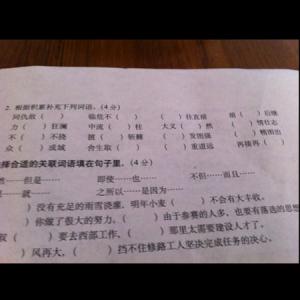 2. 根据积累补充下列词语。(4分)
同仇敌( ) 临危不( ) ( )往直前 前( )后继
力( )狂澜 中流( )柱 大义( )然 ( )情壮志
不( )不挠 披( )斩棘 ( )发图强 ( )精图治
众( )成城 舍生取( ) ( )重道远 再接再( )
择合适的关联词语填在句子里。(4分)
然……但是…… 即使……也…… 不但……而且……
……就…… 之所以……是因为……
( )没有充足的雨雪浇灌,明年小麦( )不会有大丰收。
( )你做了很大的努力,( )由于参赛的人多,也要有落选的思想
叔( )要去西部工作,( )那里太需要建设人才了。
)风再大,( )挡不住修路工人坚决完成任务的决心。